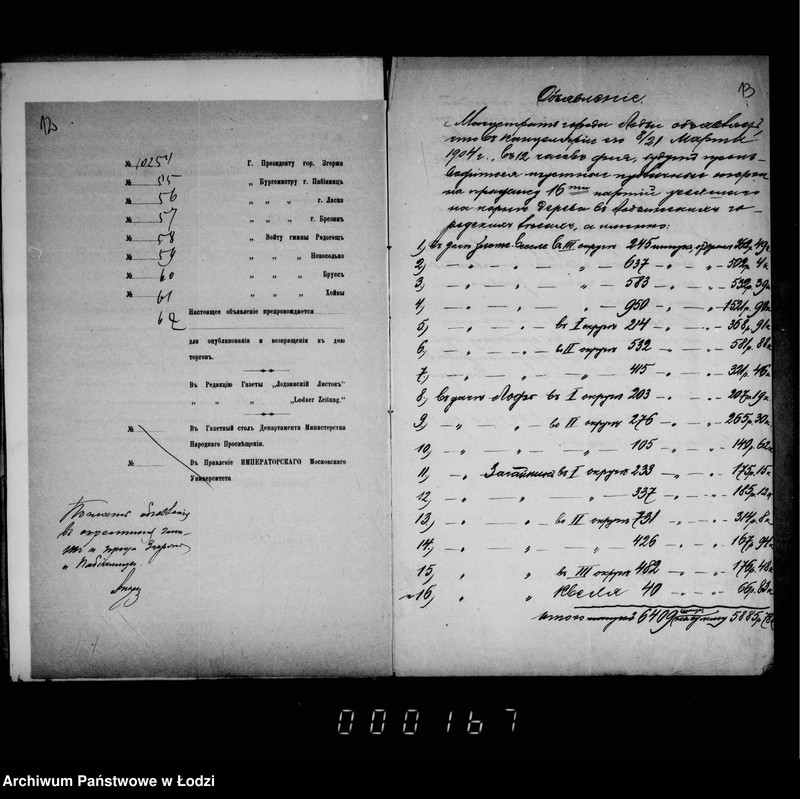 12
№ 10254 Г. Президенту гор. Згержа
№ 55 „ Бургомистру г. Пабіяницъ
№ 56 „ „ „ г. Ласка
№ 57 „ „ „ г. Брезинъ
№ 58 „ Войту гмины Радогощъ
№ 59 „ „ „ Новосольно
№ 60 „ „ „ Брусъ
№ 61 „ „ „ Хойны
62
Настоящее объявленіе препровождается
для опубликованія и возвращенія къ дню
торговъ.
Въ Редакцію Газеты „Лодзинскій Листокъ"
„ „ „ „Lodzer Zeitung."
№ Въ Газетный столъ Департамента Министерства
Народнаго Просвѣщенія.
№ Въ Правленіе ИМПЕРАТОРСКАГО Московскаго
Университета
объявленія
въ
и города Згержа
и Пабіяницы
13
Объявленіе.
Магистратъ города Лодзи объявляетъ,
что въ канцеляріи его 8/21 Марта
1904 г., въ 12 часовъ дня, будутъ произ-
водиться изустные публичные торги
на продажу 16ти партій
на корню дерева въ Лодзинскихъ го-
родскихъ лѣсахъ, а именно:
1) въ дачѣ въ III округѣ 245 штукъ 362р. 49к
2) — „ — „ — 637 — „ — 502р. 4к
3) — „ — „ — 583 — „ — 532р. 39к
4) — „ — „ — 950 — „ — 1521р. 98к
5) — „ въ I округѣ 214 — „ — 358р. 91к
6) — „ во II округѣ 532 — „ — 581р. 88к
7) — „ — „ 415 — „ — 321р. 46к
8) въ дачѣ въ I округѣ 203 — „ — 207р. 19к
9) — „ — во II округѣ 276 — „ — 265р. 30к
10) — „ — „ 105 — „ — 149р. 62к
11) — „ въ I округѣ 233 — „ — 175р. 15к
12) „ „ „ 337 — „ — 185р. 12к
13) — „ во II округѣ 731 — „ — 314р. 8к
14) — „ „ „ 426 — „ — 167р. 94к
15) „ „ въ III округѣ 482 — „ — 176р. 40к
16) „ „ 40 „ — 66р. 83к
итого 6409 на сумму 5885р. 78к
000167
Archiwum Państwowe w Łodzi